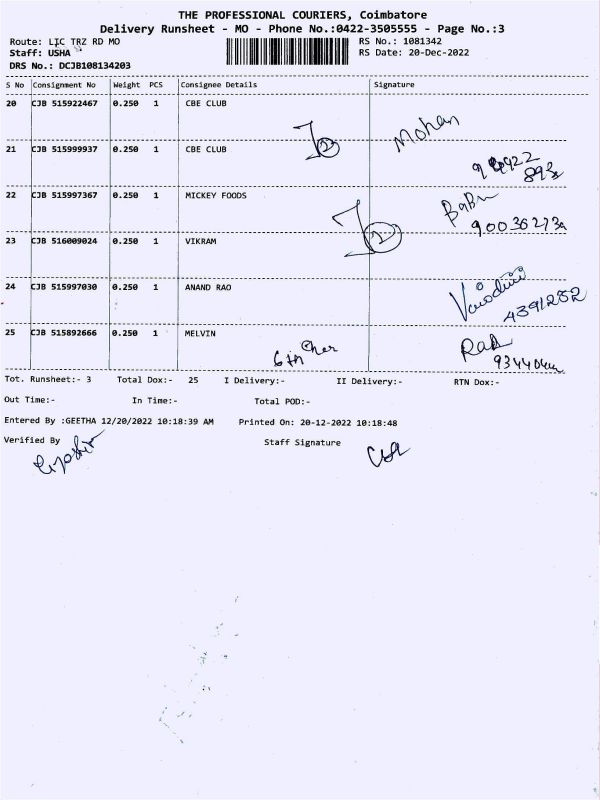 THE PROFESSIONAL COURIERS, Coimbatore
Delivery Runsheet - MO - Phone No.:0422-3505555 - Page No.:3
Route: LIC TRZ RD MO RS No.: 1081342
Staff: USHA RS Date: 20-Dec-2022
DRS No.: DCJB108134203
S No Consignment No Weight PCS Consignee Details Signature
20 CJB 515922467 0.250 1 CBE CLUB
Mohan
21 CJB 515999937 0.250 1 CBE CLUB
22 CJB 515997367 0.250 1 MICKEY FOODS
Babu
23 CJB 516009024 0.250 1 VIKRAM
24 CJB 515997030 0.250 1 ANAND RAO
4391282
25 CJB 515892666 0.250 1 MELVIN
Tot. Runsheet:- 3 Total Dox:- 25 I Delivery:- II Delivery:- RTN Dox:-
Out Time:- In Time:- Total POD:-
Entered By :GEETHA 12/20/2022 10:18:39 AM Printed On: 20-12-2022 10:18:48
Verified By Staff Signature